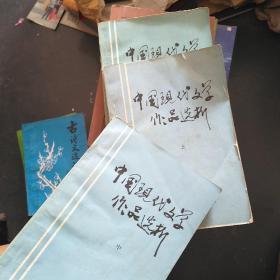 中国现代文学
中国现代文学
作品选析
上
中国现代文学
作品选析
中
古诗文选